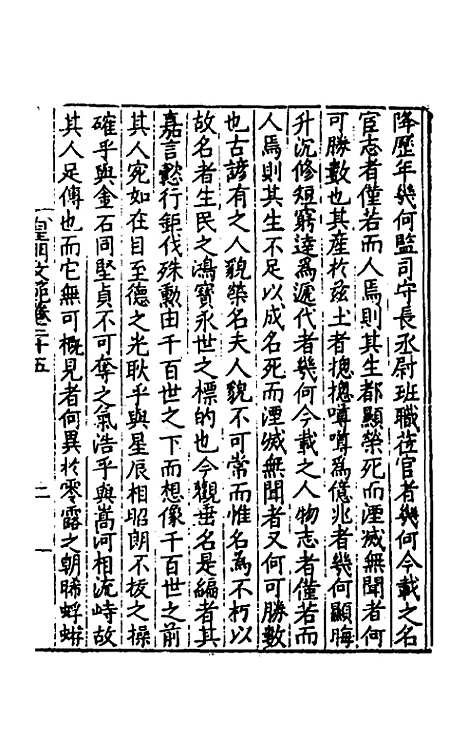 降歷年幾何監司守長丞尉班職莅官者幾何今載之名
官志者僅若而人焉則其生都顯榮死而湮滅無聞者何
可勝數也其產於玆土者摠摠噂噂為億兆者幾何顯晦
升沉修短窮達為遞代者幾何今載之人物志者僅若而
人焉則其生不足以成名死而湮滅無聞者又何可勝數
也古諺有之人貌榮名夫人貌不可常而惟名為不朽以
故名者生民之鴻寶永世之標的也今觀垂名是編者其
嘉言懿行鉅伐殊勳由千百世之下而想像千百世之前
其人宛如在目至德之光耿乎與星辰相昭朗不拔之操
確乎與金石同堅貞不可奪之氣浩乎與嵩河相流峙故
其人足傳也而它無可概見者何異於零露之朝晞蜉蝣
皇明文範卷二十五
二